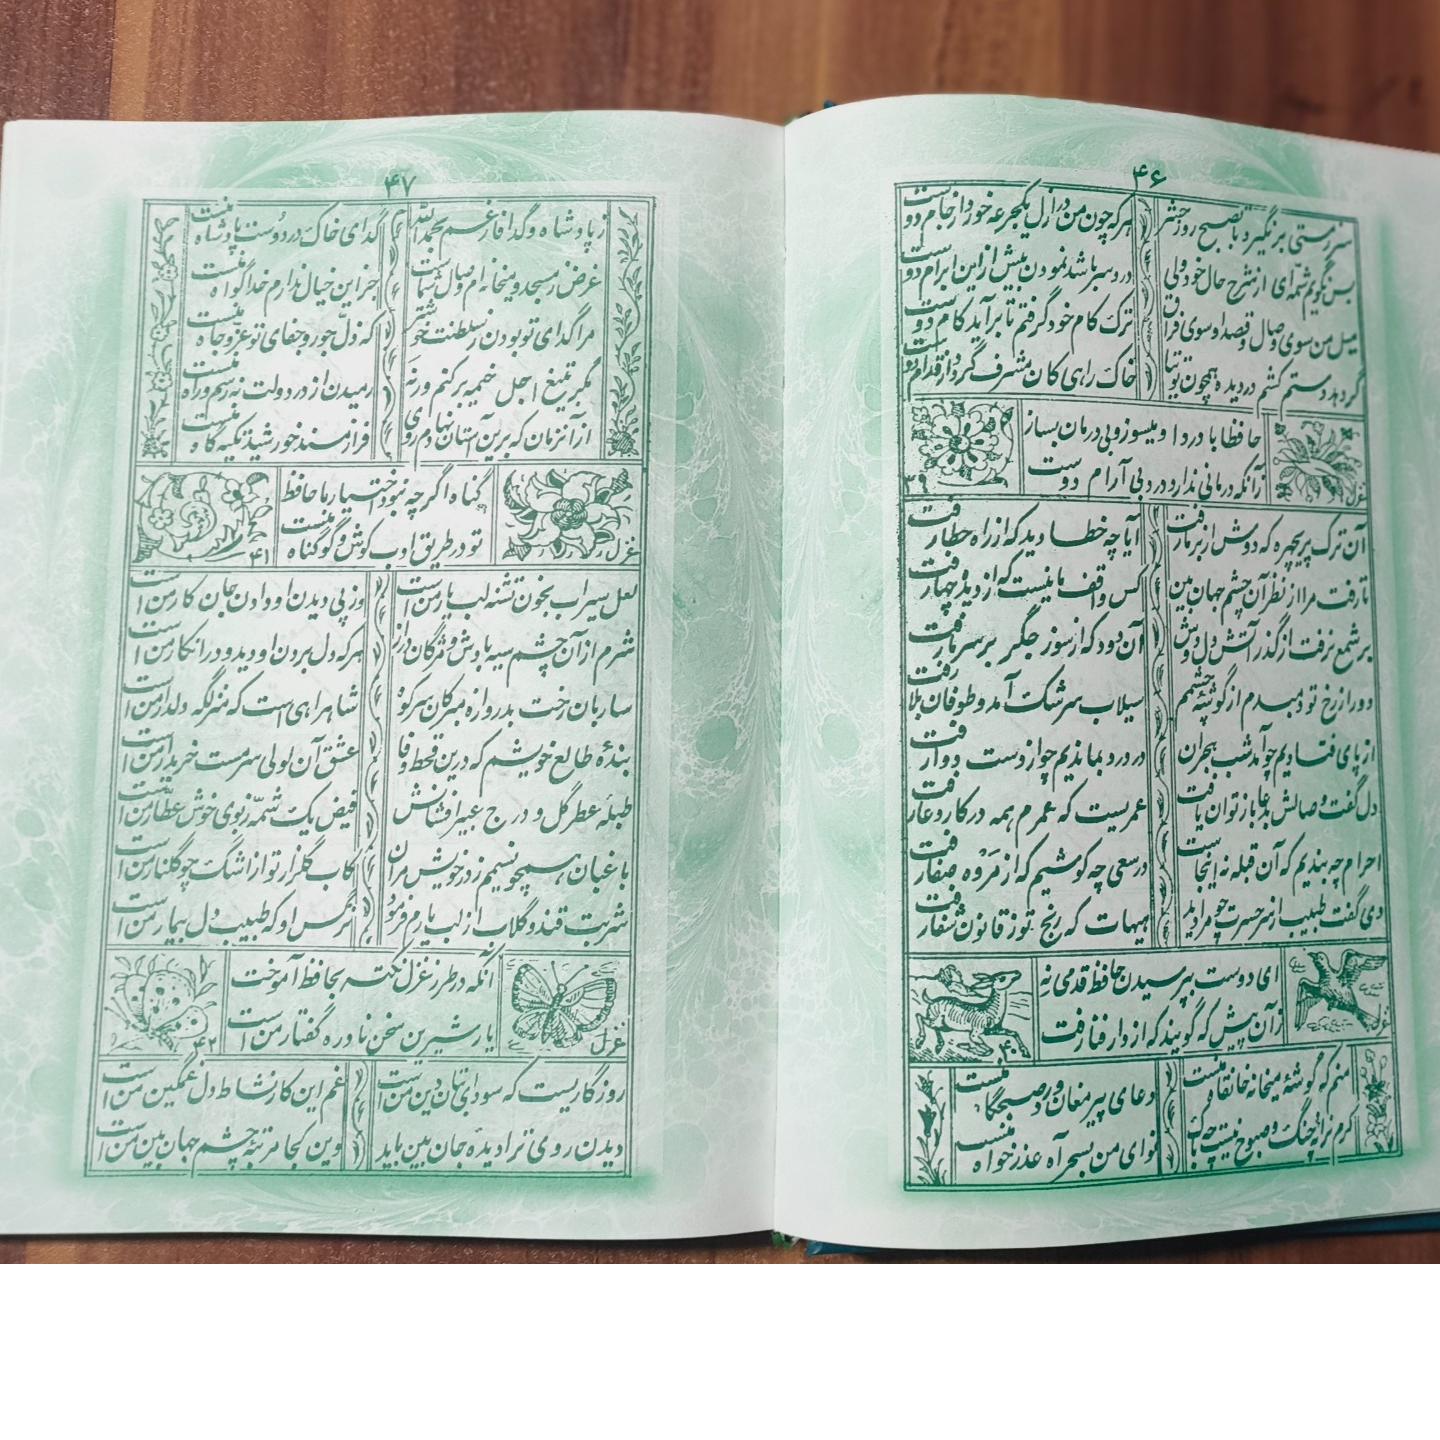 ۴۶
سر ز مستی برنگیرد تا بصبح روز حشر هرکه چون من در ازل یکجرعه خورد از جام دوست
بس نگویم شمه‌ای از شرح حال خود ولی دردسر باشد نمودن بیش از این ابرام دوست
میل من سوی وصال و قصد او سوی فراق ترک کام خود گرفتم تا برآید کام دوست
گر دهد دستم کشم در دیده همچون توتیا خاک راهی کان مشرف گردد از اقدام دوست
حافظا با درد او میسوز و بی درمان بساز
زآنکه درمانی ندارد درد بی آرام دوست
غزل ۳۹
آن ترک پریچهره که دوش از بر ما رفت آیا چه خطا دید که از راه خطا رفت
تا رفت مرا از نظر آن چشم جهان بین کس واقف ما نیست که از دیده چها رفت
بر شمع نرفت از گذر آتش دل دوش آن دود که از سوز جگر بر سر ما رفت
دور از رخ تو دمبدم از گوشه چشمم سیلاب سرشک آمد و طوفان بلا رفت
از پای فتادیم چو آمد شب هجران در درد بماندیم چو از دست دوا رفت
دل گفت وصالش بدعا باز توان یافت عمریست که عمرم همه در کار دعا رفت
احرام چه بندیم که آن قبله نه اینجاست در سعی چه کوشیم که از مروه صفا رفت
دی گفت طبیب از سر حسرت چو مرا دید هیهات که رنج تو ز قانون شفا رفت
ای دوست بپرسیدن حافظ قدمی نه
زآن پیش که گویند که از دار فنا رفت
غزل ۴۰
منم که گوشهٔ میخانه خانقاه منست دعای پیر مغان ورد صبحگاه منست
گرم ترانهٔ چنگ و صبوح نیست چه باک نوای من بسحر آه عذرخواه منست
۴۷
ز پادشاه و گدا فارغم بحمدالله گدای خاک در دوست پادشاه منست
غرض ز مسجد و میخانه‌ام وصال شماست جز این خیال ندارم خدا گواه منست
مرا گدای تو بودن ز سلطنت خوشتر که ذل جور و جفای تو عز و جاه منست
مگر بتیغ اجل خیمه برکنم ورنه رمیدن از در دولت نه رسم و راه منست
از آنزمان که برین آستان نهادم روی فراز مسند خورشید تکیه گاه منست
گناه اگرچه نبود اختیار ما حافظ
تو در طریق ادب کوش و گو گناه منست
غزل ۴۱
لعل سیراب بخون تشنه لب یار من است وز پی دیدن او دادن جان کار من است
شرم از آن چشم سیه بادش و مژگان دراز هرکه دل بردن او دید و در انکار من است
ساربان رخت بدروازه مبر کان سر کو شاهراهی است که منزلگه دلدار من است
بندهٔ طالع خویشم که درین قحط وفا عشق آن لولی سرمست خریدار من است
طبلهٔ عطر گل و درج عبیر افشانش فیض یک شمه ز بوی خوش عطار من است
باغبان همچو نسیمم ز در خویش مران کاب گلزار تو از اشک چو گلنار من است
شربت قند و گلاب از لب یارم فرمود نرگس او که طبیب دل بیمار من است
آنکه در طرز غزل نکته بحافظ آموخت
یار شیرین سخن نادره گفتار من است
غزل ۴۲
روزگاریست که سودای بتان دین من است غم این کار نشاط دل غمگین من است
دیدن روی ترا دیدهٔ جان بین باید وین کجا مرتبهٔ چشم جهان بین من است